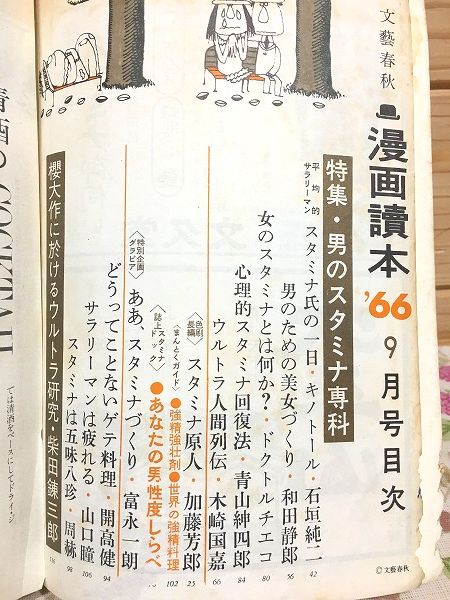 文藝春秋
漫画讀本
'66
9月号目次
特集・男のスタミナ専科
平均的サラリーマン
スタミナ氏の一日・キノトール・石垣純二 42
男のための美女づくり・和田静郎 56
女のスタミナとは何か?・ドクトルチエコ 80
心理的スタミナ回復法・青山紳四郎 84
ウルトラ人間列伝・木崎国嘉 66
〈色刷長編〉
スタミナ原人・加藤芳郎 25
〈まんとくガイド〉
●強精強壮剤●世界の強精料理 102
〈スタミナ誌上ドック〉
●あなたの男性度しらべ
〈特別企画グラビア〉
ああ、スタミナづくり・富永一朗
どうってことないゲテ料理・開高健 94
サラリーマンは疲れる・山口瞳 106
スタミナは五味八珍・周赫 98
櫻大作に於けるウルトラ研究・柴田錬三郎
©文藝春秋
清酒の COCKTAIL
では清酒をベースにしてドライジン